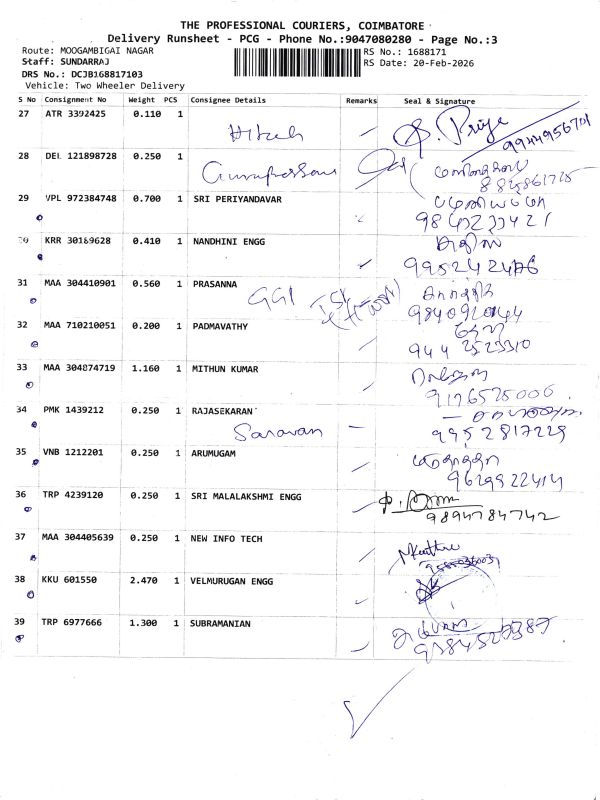 THE PROFESSIONAL COURIERS, COIMBATORE
Delivery Runsheet - PCG - Phone No.:9047080280 - Page No.:3
Route: MOOGAMBIGAI NAGAR RS No.: 1688171
Staff: SUNDARRAJ RS Date: 20-Feb-2026
DRS No.: DCJB168817103
Vehicle: Two Wheeler Delivery
S No Consignment No Weight PCS Consignee Details Remarks Seal & Signature
27 ATR 3392425 0.110 1 Hitesh Priya
9944956701
28 DEL 121898728 0.250 1
29 VPL 972384748 0.700 1 SRI PERIYANDAVAR
30 KRR 30189628 0.410 1 NANDHINI ENGG
9952424286
31 MAA 304410901 0.560 1 PRASANNA GGI
32 MAA 710210051 0.200 1 PADMAVATHY
944 2523310
33 MAA 304874719 1.160 1 MITHUN KUMAR
9176525006
34 PMK 1439212 0.250 1 RAJASEKARAN
Saravan 9952817229
35 VNB 1212201 0.250 1 ARUMUGAM
9629922414
36 TRP 4239120 0.250 1 SRI MALALAKSHMI ENGG
9894784742
37 MAA 304405639 0.250 1 NEW INFO TECH
38 KKU 601550 2.470 1 VELMURUGAN ENGG
39 TRP 6977666 1.300 1 SUBRAMANIAN